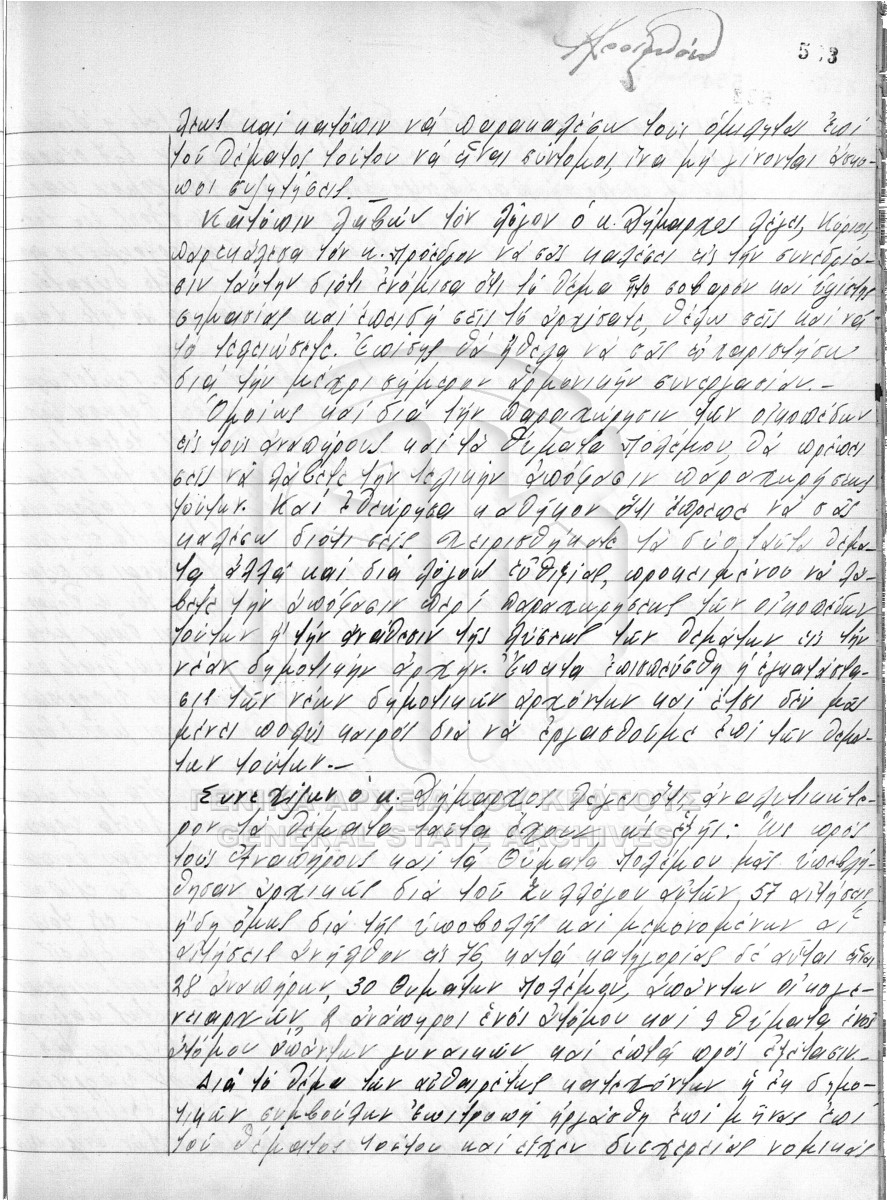 5 3
λεως καὶ κατόπιν νά παρακαλέσω τούς ὁμιλητάς ἐπί
τοῦ θέματος τούτου νά εἶναι σύντομοι, ἵνα μή γίνονται ἄσκο-
ποι συζητήσεις.
Κατόπιν λαβών τόν λόγον ὁ κ. Δήμαρχος λέγει, Κύριοι,
παρεκάλεσα τόν κ. Πρόεδρον νά σᾶς καλέσει εἰς τήν συνεδρία-
σιν ταύτην διότι ἐνόμισα ὅτι τό θέμα ἦτο σοβαρόν καί ὑψίστης
σημασίας καί ἐπειδή σεῖς τό ἀρχίσατε, θέλω σεῖς καί νά
τό τελειώσετε. Ἐπίσης θά ἤθελα νά σᾶς εὐχαριστήσω
διά τήν μέχρι σήμερον ἁρμονικήν συνεργασίαν.-
Ὁμοίως καί διά τήν παραχώρησιν τῶν οἰκοπέδων
εἰς τούς ἀναπήρους καί τά θύματα πολέμου, θά πρέπει
σεῖς νά λάβετε τήν τελικήν ἀπόφασιν παραχωρήσεως
τούτων. Καί ἐθεώρησα καθῆκον ὅτι ἔπρεπε νά σᾶς
καλέσω διότι σεῖς χειρισθήκατε τά δύο ταῦτα θέμα-
τα ἀλλά καί διά λόγους εὐθιξίας, προκειμένου νά λά-
βετε τήν ἀπόφασιν περί παραχωρήσεως τῶν οἰκοπέδων
τούτων ἤ τήν ἀνάθεσιν τῆς λύσεως τῶν θεμάτων εἰς τήν
νέαν δημοτικήν ἀρχήν. Ἔπειτα ἐπισπεύσθη ἡ ἐγκατάστα-
σις τῶν νέων δημοτικῶν ἀρχόντων καί ἔτσι δέν μᾶς
μένει πολύς καιρός διά νά ἐργασθοῦμε ἐπί τῶν θεμά-
των τούτων.-
Συνεχίζων ὁ κ. Δήμαρχος λέγει ὅτι, ἀναλυτικώτε-
ρον τά θέματα ταῦτα ἔχουν ὡς ἑξῆς: Ὡς πρός
τούς Ἀναπήρους καί τά Θύματα Πολέμου μᾶς ὑπεβλή-
θησαν ἀρχικῶς διά τοῦ Συλλόγου αὐτῶν, 57 αἰτήσεις
ἤδη ὅμως διά τῆς ὑποβολῆς καί μεμονομένων αἱ
αἰτήσεις ἀνῆλθον εἰς 76, κατά κατηγορίας δέ αὗται εἶναι
28 ἀναπήρων, 30 Θυμάτων Πολέμου, ἁπάντων οἰκογε-
νειαρχῶν, 8 ἀνάπηροι ἑνός ἀτόμου καί 9 θύματα ἑνός
ἀτόμου ἁπάντων γυναικῶν καί ἑπτά πρός ἐξέτασιν.-
Διά τό θέμα τῶν αὐθαιρέτως κατεχόντων ἡ ἐκ δημο-
τικῶν συμβούλων Ἐπιτροπή ἠργάσθη ἐπί μῆνας ἐπί
τοῦ θέματος τούτου καί εἶχεν δυσχερείας νομικάς
ΓΕΝΙΚΑ ΑΡΧΕΙΑ ΤΟΥ ΚΡΑΤΟΥΣ
GENERAL STATE ARCHIVES